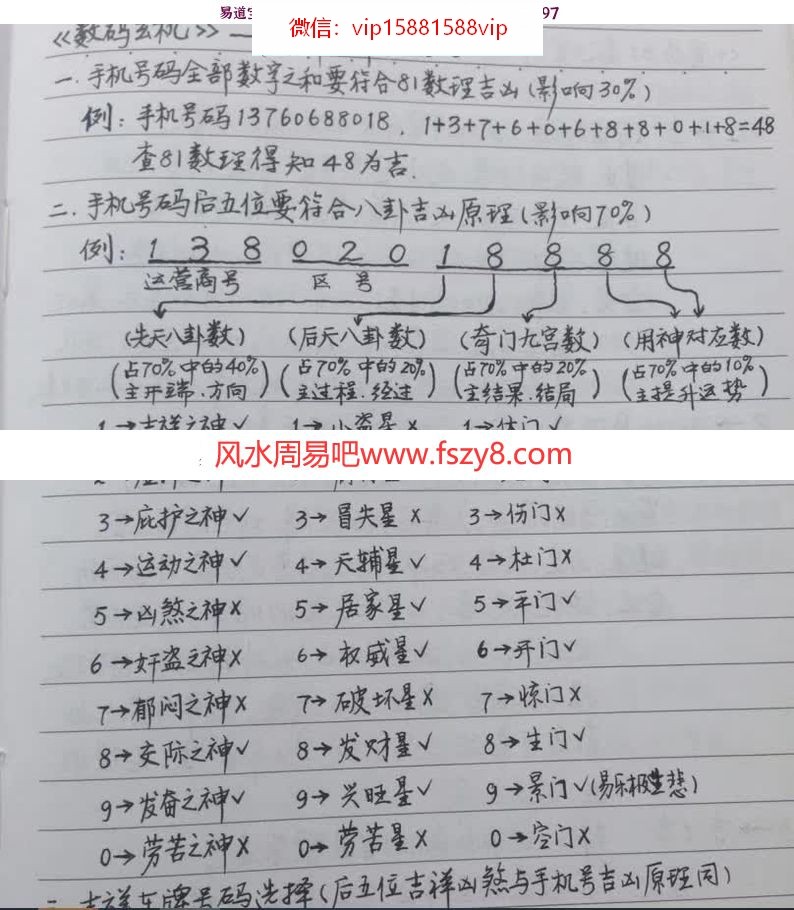 易道宝
97
微信：vip15881588vip
《数码玄机》
一.手机号码全部数字之和要符合81数理吉凶(影响30%)
例：手机号码13760688018，1+3+7+6+0+6+8+8+0+1+8=48
查81数理得知48为吉.
二.手机号码后五位要符合八卦吉凶原理(影响70%)
例：1 3 8 0 2 0 1 8 8 8 8
运营商号 区号
(先天八卦数) (后天八卦数) (奇门九宫数) (用神对应数)
(占70%中的40% 主开端.方向) (占70%中的20% 主过程.经过) (占70%中的20% 主结果.结局) (占70%中的10% 主提升运势)
1→吉祥之神√ 1→小盗星× 1→休门√
风水周易吧www.fszy8.com
3→庇护之神√ 3→冒失星× 3→伤门×
4→运动之神√ 4→天辅星√ 4→杜门×
5→凶煞之神× 5→居家星√ 5→平门√
6→奸盗之神× 6→权威星√ 6→开门√
7→郁闷之神× 7→破坏星× 7→惊门×
8→交际之神√ 8→发财星√ 8→生门√
9→发奋之神√ 9→兴旺星√ 9→景门√(易乐极生悲)
0→劳苦之神× 0→劳苦星× 0→空门×
吉祥车牌号码选择(后五位吉祥凶煞与手机号吉凶原理同)